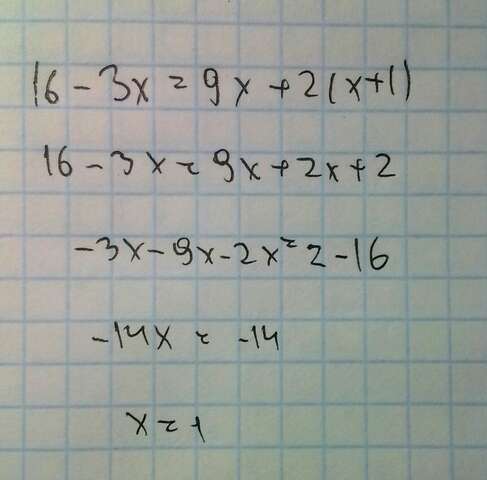 16 - 3x = 9x + 2(x+1)
16 - 3x = 9x + 2x + 2
-3x - 9x - 2x = 2 - 16
-14x = -14
x = 1